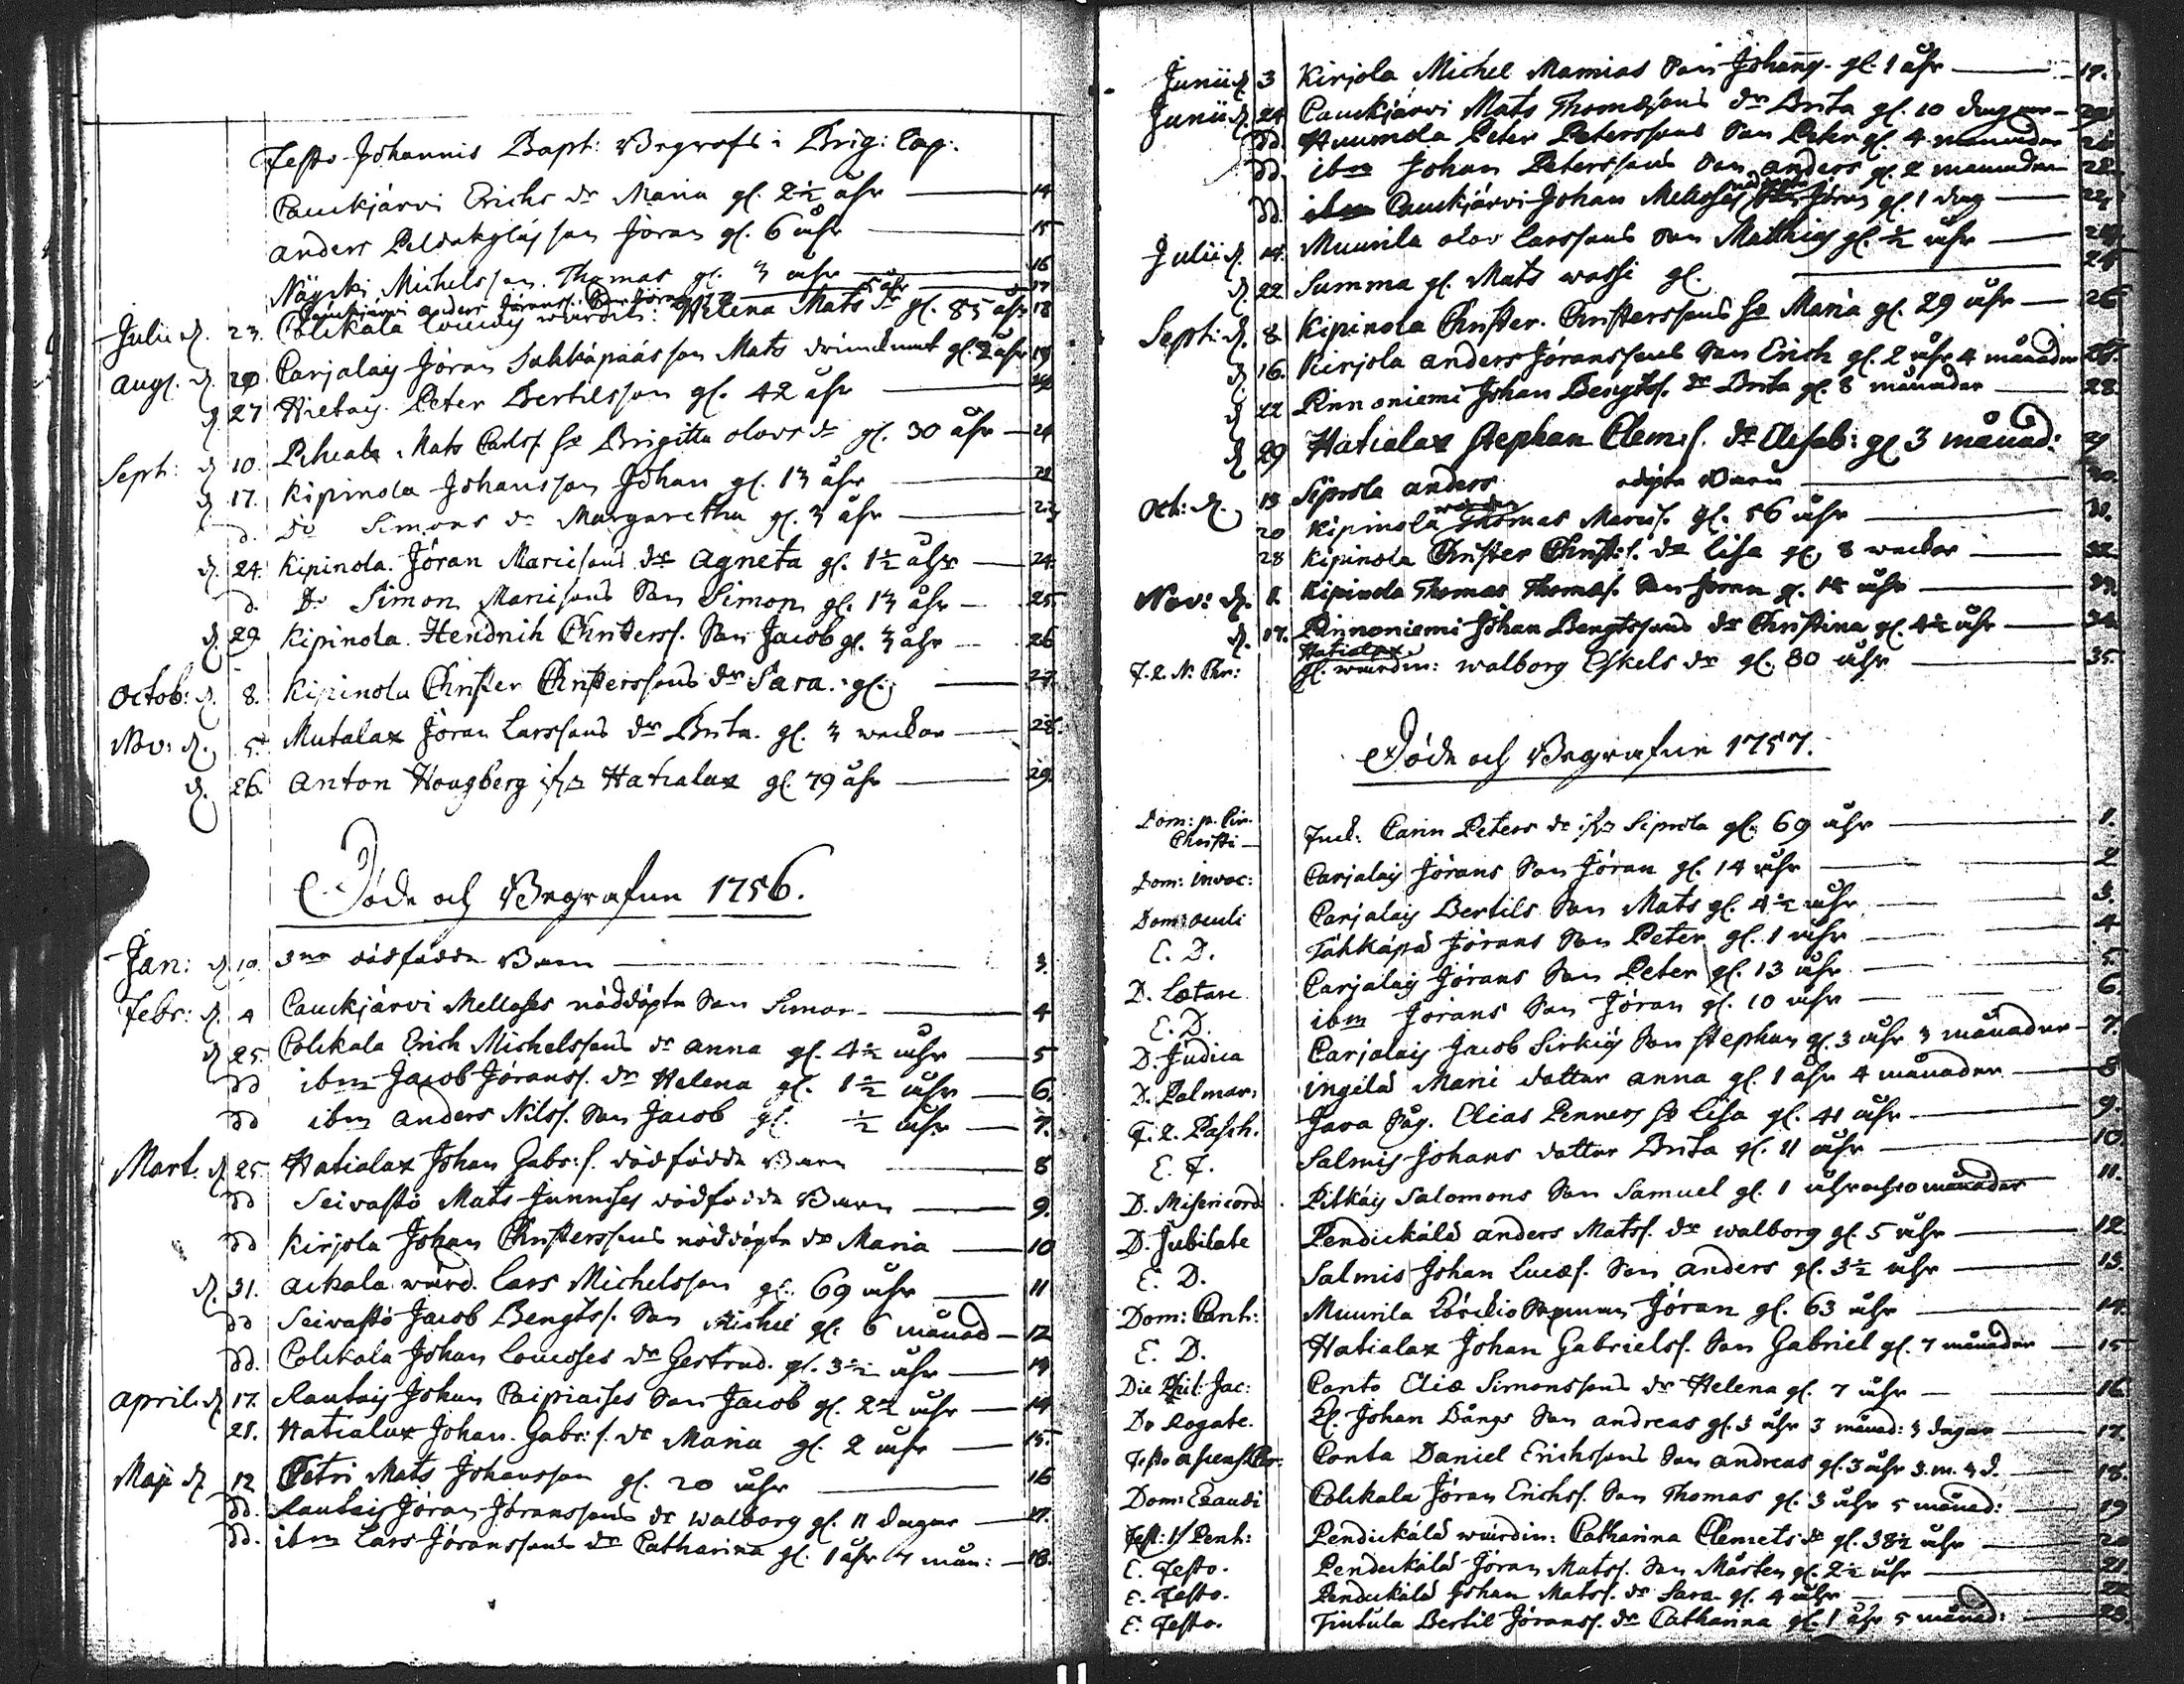 Festo Johannis Bapt: Begrofs i Brig: Cap:
Cauckjärvi Erichs dr Maria gl. 2½ åhr — 14
Anders Peldakyläs son Jöran gl. 6 åhr — 15
Näycki Michelsson Thomas gl. 3 åhr — 16
Cauckjärvi Anders Jöranss. Son Jöran 5 åhr — 17
Julii d. 23. Colckala Loucos wärdin: Helena Mats dr gl. 85 åhr 18
Augs. d. 20 Carjalais Jöran Suhkapääs son Mats gl. 2 åhr 19
d. 27 Hietais Peter Bertilsson gl. 42 åhr — 20
Sept: d. 10. Mats Carlss. ho Brigitta Olovs dr gl. 30 åhr — 21
d. 17. Kipinola Johansson Johan gl. 13 åhr — 22
d. Do Simons dr Margaretha gl. 3 åhr — 23
d. 24. Kipinola Jöran Marcisons dr Agneta gl. 1½ åhr — 24.
d. Do Simon Marcisons Son Simon gl. 13 åhr — 25.
d. 29. Kipinola Hendrich Christerss. Son Jacob gl. 3 åhr — 26
Octob: d. 8. Kipinola Christer Christerssons dr Sara. gl. — 27.
Nov: d. 5. Mutalax Jöran Larssons dr Brita. gl. 3 weckor — 28.
d. 26. Anton Hougberg ifrn Hatialax gl. 79 åhr — 29.
Döde och Begrafne 1756.
Jan: d. 10. 3ne dödfödda Barn — 3.
Febr: d. 4 Cauckjärvi Melloses nöddöpte Son Simon — 4
d. 25. Colckala Erich Michelssons dr Anna gl. 4½ åhr — 5
dd ibm Jacob Jöranss. dr Helena gl. 1½ åhr — 6.
dd ibm Anders Nilss. Son Jacob gl. ½ åhr — 7.
Mart. d. 25. Hatialax Johan Gabr: s. dödfödda Barn — 8
dd Seivastö Mats Junnises dödfödda Barn — 9.
dd Kirjola Johan Christerssons nöddöpte dr Maria — 10
d. 31. Ackala wärd. Lars Michelsson gl. 69 åhr — 11
dd Seivastö Jacob Bengtss. Son Michel gl. 6 månad — 12
dd. Colckala Johan Loucoses dr Gertrud. gl. 3½ åhr — 13
April. d. 17. Rautais Johan Caipiaises Son Jacob gl. 2½ åhr — 14
21. Hatialax Johan Gabr: s. dr Maria gl. 2 åhr — 15.
Maji d. 12 Petri Mats Johansson gl. 20 åhr — 16
dd. Rautais Jöran Jöranssons dr Walborg gl. 11 dagar — 17.
dd. ibm Lars Jöranssons dr Catharina gl. 1 åhr 7 mån: — 18.
Junii d. 3 Kirjola Michel Mamias Son Johannes gl. 1 åhr — 19.
Junii d. 24 Cauckjärvi Mats Thomæsons dr Brita gl. 10 dagar — 20
dd. Huumola Peter Peterssons Son Peter gl. 4 månader 21
dd. ibm Johan Peterssons Son Anders gl. 2 månader 22.
dd. Cauckjärvi Johan Melloses nöddöpte Son Jöran gl. 1 dag — 23
Julii d. 14. Muurila Olov Larssons Son Mathias gl. ½ åhr — 24.
d. 22 Summa gl. Mats Wassi gl. — 25
Sept: d. 8. Kipinola Christer Christerssons ho Maria gl. 29 åhr — 26
d. 16. Kirjola Anders Jöranssons Son Erich gl. 2 åhr 4 månader 27.
d. 22 Pinnoniemi Johan Bengtss. dr Brita gl. 8 månader — 28.
d. 29 Hatialax Stephan Clem: s. dr Elisab: gl. 3 månad: 29
Oct: d. 13 Siprola Anders odöpte Barn — 30.
20 Kipinola wärden Thomas Marcis. gl. 56 åhr — 31.
28 Kipinola Christer Christ: s. dr Lisa gl. 8 weckor — 32
Nov: d. 1. Kipinola Thomas Thomæs. Son Jöran gl. 15 åhr — 33.
d. 17. Pinnoniemi Johan Bengtssons dr Christina gl. 4½ åhr — 34.
F. 2. N. Chr: Hatialax gl. wärdin: Walborg Eskels dr gl. 80 åhr — 35.
Döde och Begrafne 1757.
Dom: p. Cir. Christi — Inh: Carin Peters dr ifrn Siprola gl. 69 åhr — 1.
Dom: Invoc: Carjalais Jörans Son Jöran gl. 14 åhr — 2
Dom: Oculi Carjalais Bertils Son Mats gl. 4½ åhr — 3.
E. D. Tähkäpää Jörans Son Peter gl. 1 åhr — 4
D. Lætare Carjalais Jörans Son Peter gl. 13 åhr — 5.
E. D. ibm Jörans Son Jöran gl. 10 åhr — 6.
D. Judica Carjalais Jacob Sirkiäs Son Stephan gl. 3 åhr 3 månader — 7.
D. Palmar. Ingilä Marci dotter Anna gl. 1 åhr 4 månader — 8
F. 2. Pasch. Java Såg. Elias Pennes ho Lisa gl. 41 åhr — 9.
E. F. Salmis Johans dotter Brita gl. 11 åhr — 10.
D. Misericord. Pitkäis Salomons Son Samuel gl. 1 åhr och 10 månader 11.
D. Jubilate Pendickälä Anders Matss. dr Walborg gl. 5 åhr — 12
E. D. Salmis Johan Lucæs. Son Anders gl. 3½ åhr — 13.
Dom: Cant: Muurila Jöran gl. 63 åhr — 14.
E. D. Hatialax Johan Gabrielss. Son Gabriel gl. 7 månader — 15
Die Phil: Jac: Conto Eliæ Simonssons dr Helena gl. 7 åhr — 16.
Do Rogate. Johan Bångs Son Andreas gl. 3 åhr 3 månad: 3 dagar — 17.
Festo Ascens. Chr. Conta Daniel Erichssons Son Andreas gl. 3 åhr 3. m. 3 d. — 18.
Dom: Exaudi Colckala Jöran Erichss. Son Thomas gl. 3 åhr 5 månad: — 19
Fest: 1 Pent: Pendickälä wärdin: Catharina Clemets dr gl. 38½ åhr — 20
E. Festo. Pendickälä Jöran Matss. Son Mårten gl. 2½ åhr — 21
E. Festo. Pendickälä Johan Matss. dr Sara gl. 4 åhr — 22
E. Festo. Tintula Bertil Jöranss. dr Catharina gl. 1 åhr 5 månad: — 23.